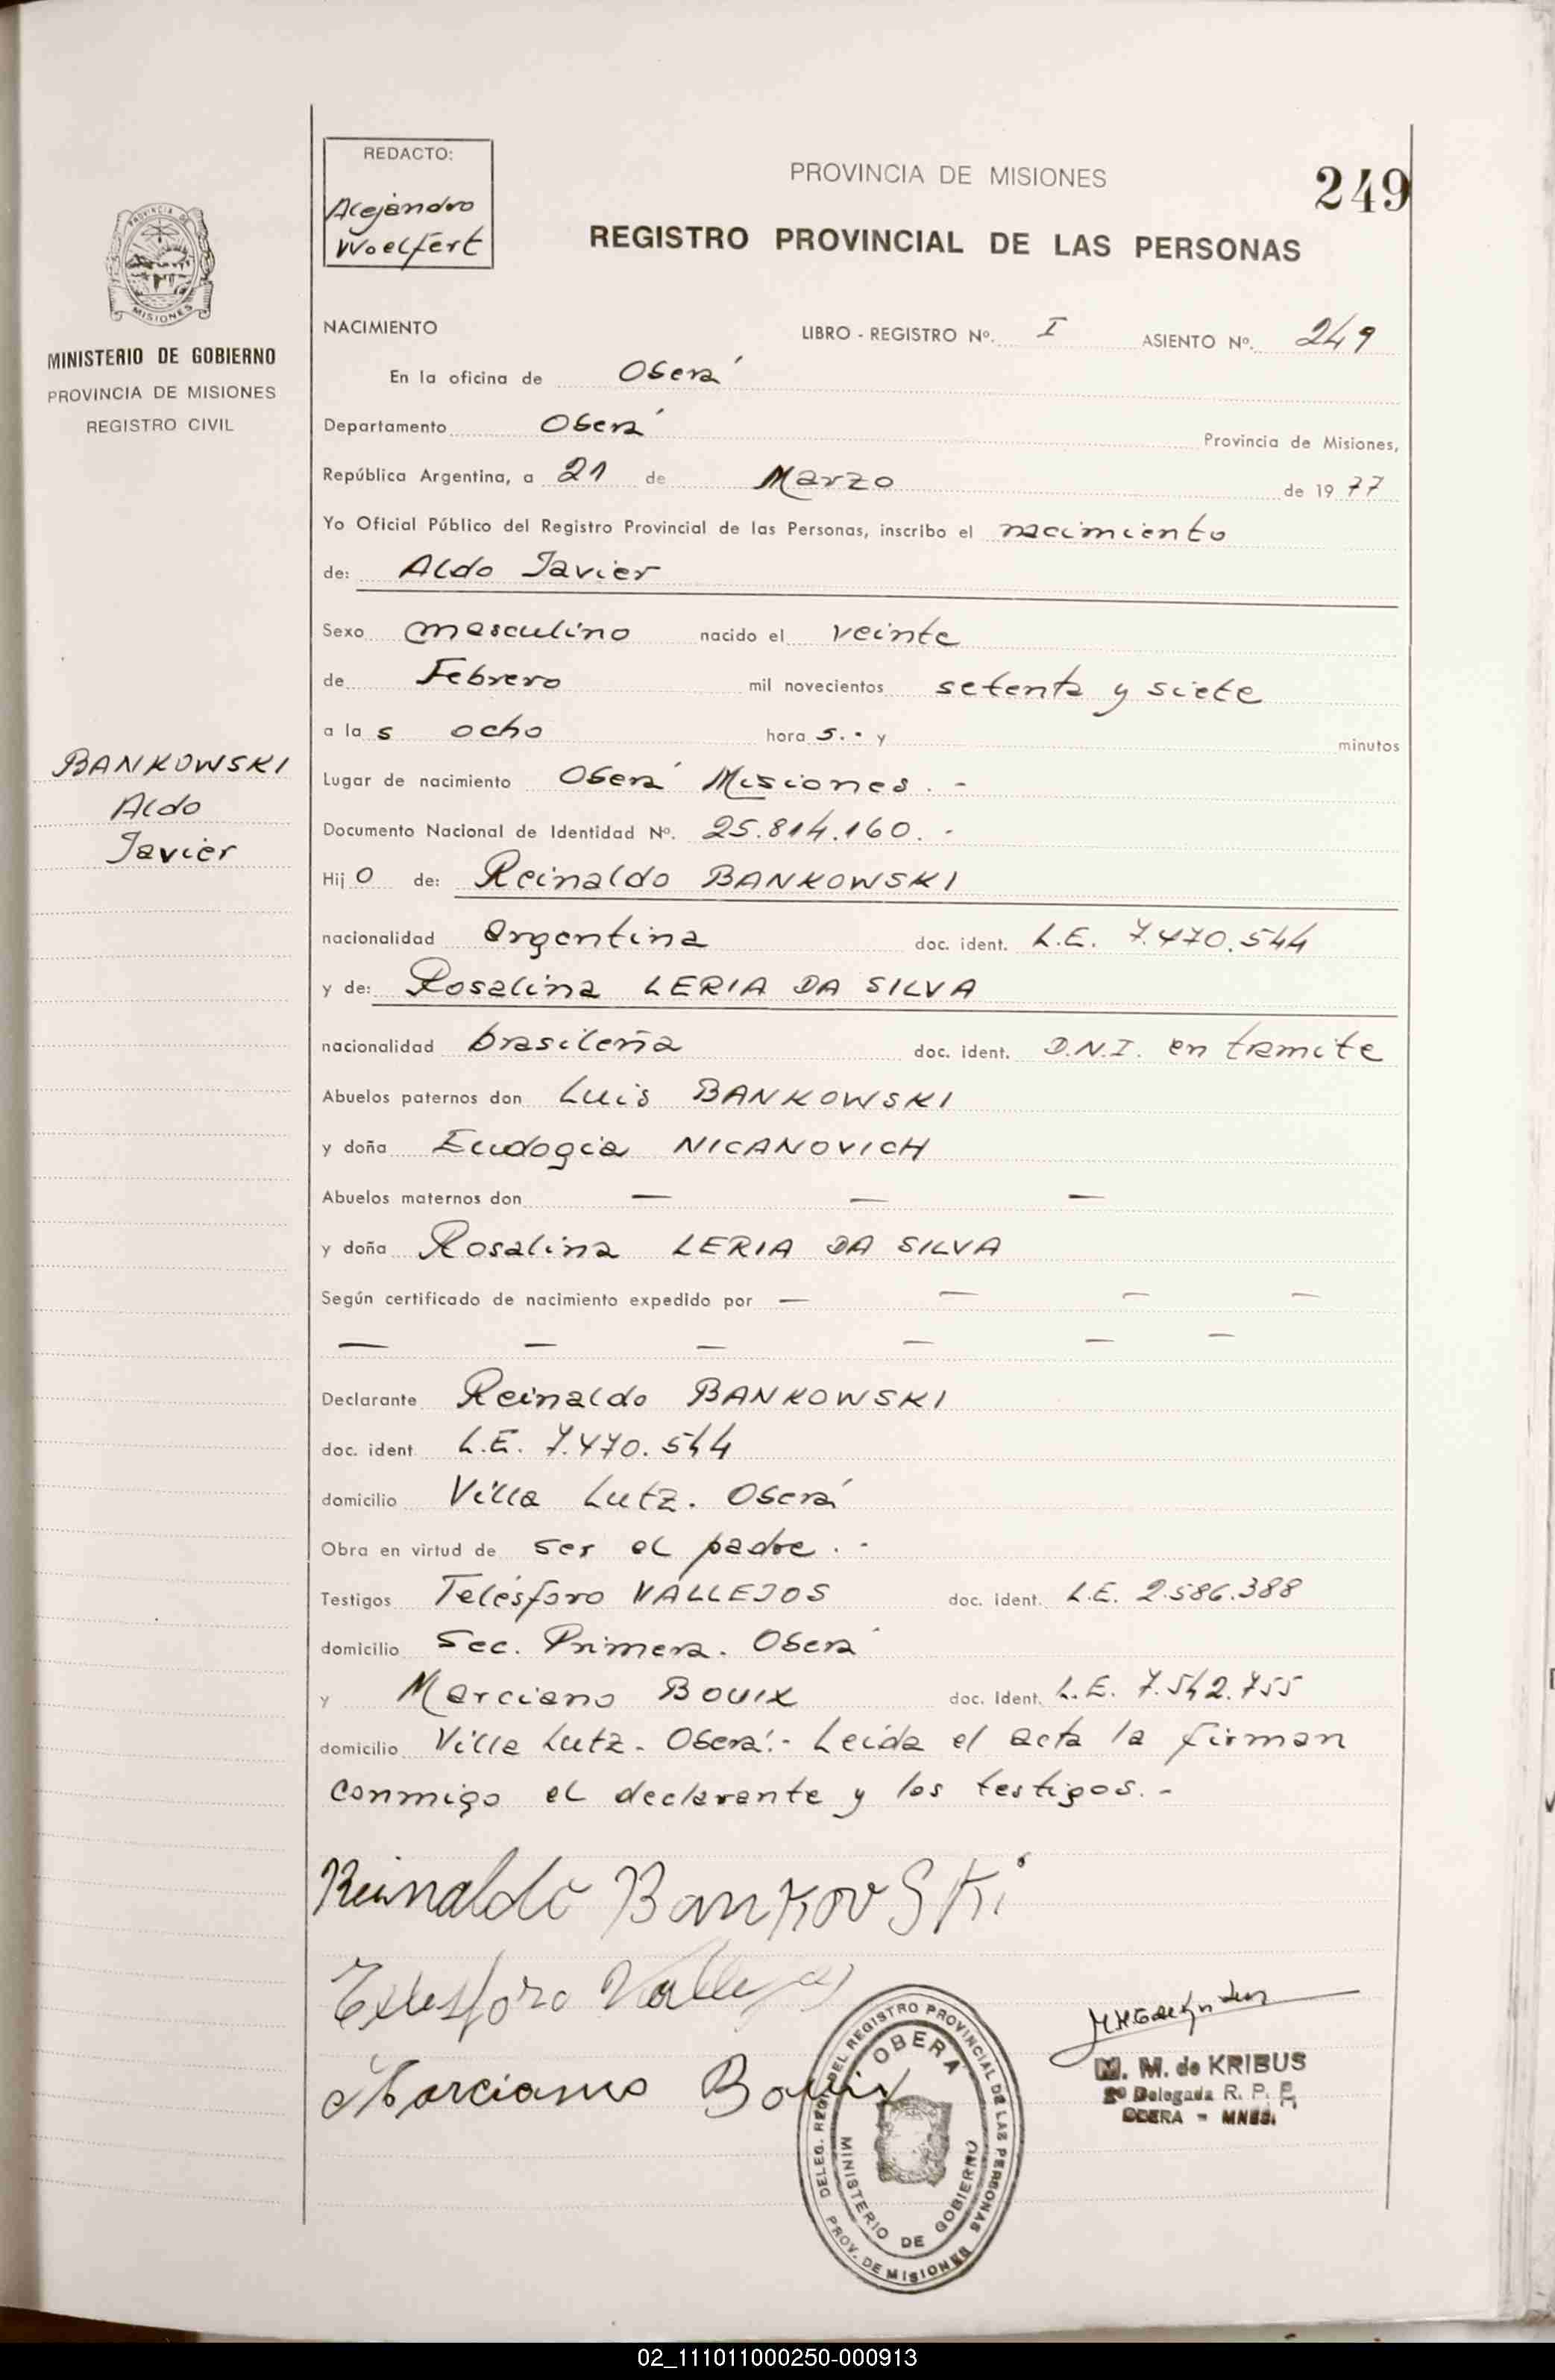 REDACTO:
Alejandro
Woelfert
PROVINCIA DE MISIONES
249
REGISTRO PROVINCIAL DE LAS PERSONAS
PROVINCIA DE
MISIONES
MINISTERIO DE GOBIERNO
PROVINCIA DE MISIONES
REGISTRO CIVIL
NACIMIENTO LIBRO - REGISTRO Nº. I ASIENTO Nº. 249
En la oficina de Oberá
Departamento Oberá Provincia de Misiones,
República Argentina, a 21 de Marzo de 1977
Yo Oficial Público del Registro Provincial de las Personas, inscribo el nacimiento
de: Aldo Javier
Sexo masculino nacido el veinte
de Febrero mil novecientos setenta y siete
a las ocho horas.- y minutos
BANKOWSKI
Aldo
Javier
Lugar de nacimiento Oberá Misiones. -
Documento Nacional de Identidad Nº. 25.814.160. -
Hijo de: Reinaldo BANKOWSKI
nacionalidad argentina doc. ident. L.E. 7.470.544
y de: Rosalina LERIA DA SILVA
nacionalidad brasileña doc. ident. D.N.I. en tramite
Abuelos paternos don Luis BANKOWSKI
y doña Eudogia NICANOVICH
Abuelos maternos don — — —
y doña Rosalina LERIA DA SILVA
Según certificado de nacimiento expedido por — — — —
— — — — — —
Declarante Reinaldo BANKOWSKI
doc. ident. L.E. 7.470.544
domicilio Villa Lutz. Oberá
Obra en virtud de ser el padre. -
Testigos Telésforo VALLEJOS doc. ident. L.E. 2.586.388
domicilio Sec. Primera. Oberá
y Marciano BOUIX doc. ident. L.E. 7.542.755
domicilio Villa Lutz - Oberá.- Leída el acta la firman
conmigo el declarante y los testigos. -
Reinaldo BankovSKi
Telesforo Vallejos
Marciano Bouix
DELEG. REG. DEL REGISTRO PROVINCIAL DE LAS PERSONAS
OBERA
MINISTERIO DE GOBIERNO
PROV. DE MISIONES
M. M. de KRIBUS
2º Delegada R. P. P.
OBERA - MNES.
02_111011000250-000913